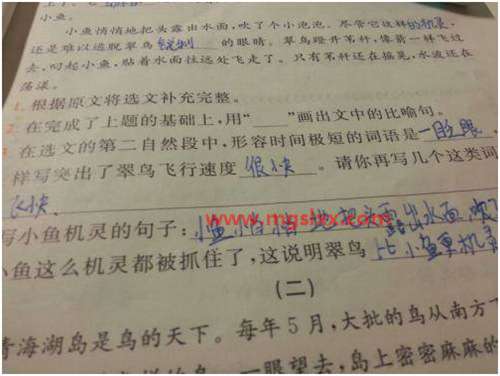 小鱼。
小鱼悄悄地把头露出水面,吹了个小泡泡。尽管它这样的机灵,
还是难以逃脱翠鸟锐利的眼睛。翠鸟蹬开苇秆,像箭一样飞过
去,叼起小鱼,贴着水面往远处飞走了。只有苇秆还在摇晃,水波还在
荡漾。
1.根据原文将选文补充完整。
2.在完成了上题的基础上,用“____”画出文中的比喻句。
在选文的第二自然段中,形容时间极短的词语是一眨眼
样写突出了翠鸟飞行速度很快。请你再写几个这类词
飞快
写小鱼机灵的句子:小鱼悄悄地把头露出水面,吹了
小鱼这么机灵都被抓住了,这说明翠鸟比小鱼更机灵
www.mgslxx.com
(二)
青海湖岛是鸟的天下。每年5月,大批的鸟从南方
一眼望去,岛上密密麻麻的